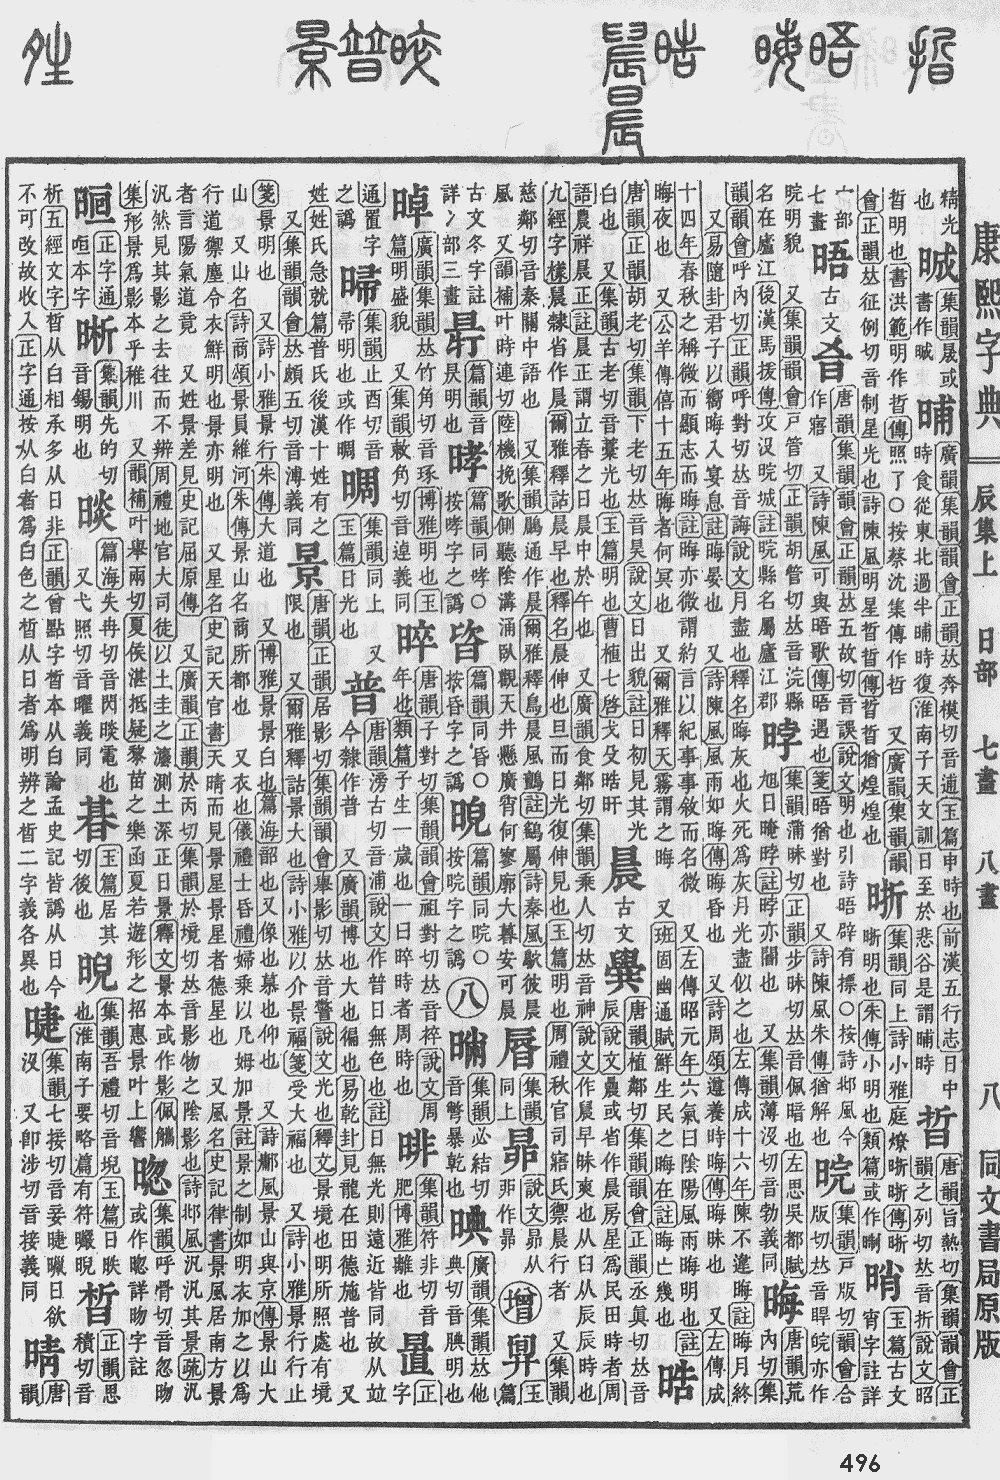 康熙字典　辰集上　日部　七畫　八畫　八　同文書局原版
精光
也
晠
集韻晟或
書作晠
晡
廣韻集韻韻會正韻𠀤奔模切音逋玉篇申時也前漢五行志日中
時食從東北過半晡時復淮南子天文訓日至於悲谷是謂晡時
晢
唐韻旨熱切集韻韻會正
韻之列切𠀤音折說文昭
晢明也書洪範明作晢傳照了○按蔡沈集傳作哲 又廣韻集韻韻
會正韻𠀤征例切音制星光也詩陳風明星晢晢傳晢晢猶煌煌也
晣
集韻同上詩小雅庭燎晣晣傳晣
晣明也朱傳小明也類篇或作晰
玉篇古文
宵字註詳
宀部
七畫
晤
古文
唐韻集韻韻會正韻𠀤五故切音誤說文明也引詩晤辟有摽○按詩邶風今
作寤 又詩陳風可與晤歌傳晤遇也箋晤猶對也 又詩陳風朱傳猶解也
晥
集韻戸版切韻會合
版切𠀤音睅皖亦作
睆明貌 又集韻韻會戸管切正韻胡管切𠀤音浣縣
名在廬江後漢馬援傳攻没晥城註晥縣名屬廬江郡
㫲
集韻蒲昧切正韻步昧切𠀤音佩暗也左思吳都賦
旭日晻㫲註㫲亦闇也 又集韻薄没切音勃義同
晦
唐韻荒
內切集
韻韻會呼內切正韻呼對切𠀤音誨說文月盡也釋名晦灰也火死爲灰月光盡似之也左傳成十六年陳不違晦註晦月終
又易隨卦君子以嚮晦入宴息註晦晏也 又詩陳風風雨如晦傳晦昏也 又詩周頌遵養時晦傳晦昧也 又左傳成
十四年春秋之稱微而顯志而晦註晦亦微謂約言以紀事事敘而名微 又左傳昭元年六氣曰陰陽風雨晦明也註
晦夜也 又公羊傳僖十五年晦者何冥也 又爾雅釋天霧謂之晦 又班固幽通賦鮮生民之晦在註晦亡幾也
晧
唐韻正韻胡老切集韻下老切𠀤音昊說文日出貌註日初見其光
白也 又集韻古老切音藁光也玉篇明也曹植七啓戈殳晧旰
晨
古文
唐韻植鄰切集韻韻會正韻丞眞切𠀤音
辰說文曟或省作晨房星爲民田時者周
語農祥晨正註晨正謂立春之日晨中於午也 又廣韻食鄰切集韻乘人切𠀤音神說文作䢅早昧爽也从臼从辰辰時也
九經字樣䢅隸省作晨爾雅釋詁晨早也釋名晨伸也旦而日光復伸見也玉篇明也周禮秋官司寤氏禦晨行者 又集韻
慈鄰切音秦關中語也 又集韻鷐通作晨爾雅釋鳥晨風鸇註鷂屬詩秦風鴥彼晨
風 又韻補叶時連切陸機挽歌側聽陰溝涌臥觀天井懸廣霄何寥廓大暮安可晨
集韻
同上
增
玉
篇
古文冬字註
詳冫部三畫
篇韻音
昃明也
篇韻同哮○
按哮字之譌
篇韻同昏○
按昏字之譌
晚
篇韻同晥○
按晥字之譌
八
集韻必結切
音彆暴乾也
晪
廣韻集韻𠀤他
典切音腆明也
晫
廣韻集韻𠀤竹角切音琢博雅明也玉
篇明盛貌 又集韻敕角切音逴義同
晬
唐韻子對切集韻韻會祖對切𠀤音祽說文周
年也類篇子生一歲也一曰晬時者周時也
暃
集韻符非切音
肥博雅離也
正
字
通置字
之譌
集韻止酉切音
帚明也或作晭
晭
集韻同上 又
玉篇日光也
普
唐韻滂古切音浦說文作暜日無色也註日無光則遠近皆同故从竝
今隸作普 又廣韻博也大也徧也易乾卦見龍在田德施普也 又
姓姓氏急就篇普氏後漢十姓有之
又集韻韻會𠀤頗五切音溥義同
景
唐韻正韻居影切集韻韻會舉影切𠀤音警說文光也釋文景境也明所照處有境
限也 又爾雅釋詁景大也詩小雅以介景福箋受大福也 又詩小雅景行行止
箋景明也 又詩小雅景行朱傳大道也 又博雅景景白也篇海韶也又像也慕也仰也 又詩鄘風景山與京傳景山大
山 又山名詩商頌景員維河朱傳景山名商所都也 又衣也儀禮士昏禮婦乘以几姆加景註景之制如明衣加之以爲
行道禦塵令衣鮮明也景亦明也 又星名史記天官書天晴而見景星景星者德星也 又風名史記律書景風居南方景
者言陽氣道竟 又姓景差見史記屈原傳 又廣韻正韻於丙切集韻於境切𠀤音影物之陰影也詩邶風汎汎其景疏汎
汎然見其影之去往而不辨周禮地官大司徒以土圭之灋測土深正日景釋文景本或作影佩觿
集形景爲影本乎稚川 又韻補叶舉兩切夏侯湛抵疑黎苗之樂函夏若遊形之招惠景叶上響
集韻呼骨切音忽昒
或作㫚詳昒字註
晅
正字通
㫜本字
晰
集韻先的切
音錫明也
晱
篇海失冉切音閃晱電也
又弋照切音曜義同
朞
玉篇居其
切後也
晲
集韻吾禮切音堄玉篇日昳
也淮南子要略篇有符曮晲
晳
正韻思
積切音
析五經文字晳从白相承多从日非正韻曾點字晳本从白論孟史記皆譌从日今
不可改故收入正字通按从白者爲白色之晳从日者爲明辨之晳二字義各異也
集韻七接切音妾
没 又卽涉切音接義同
晴
唐
韻
496